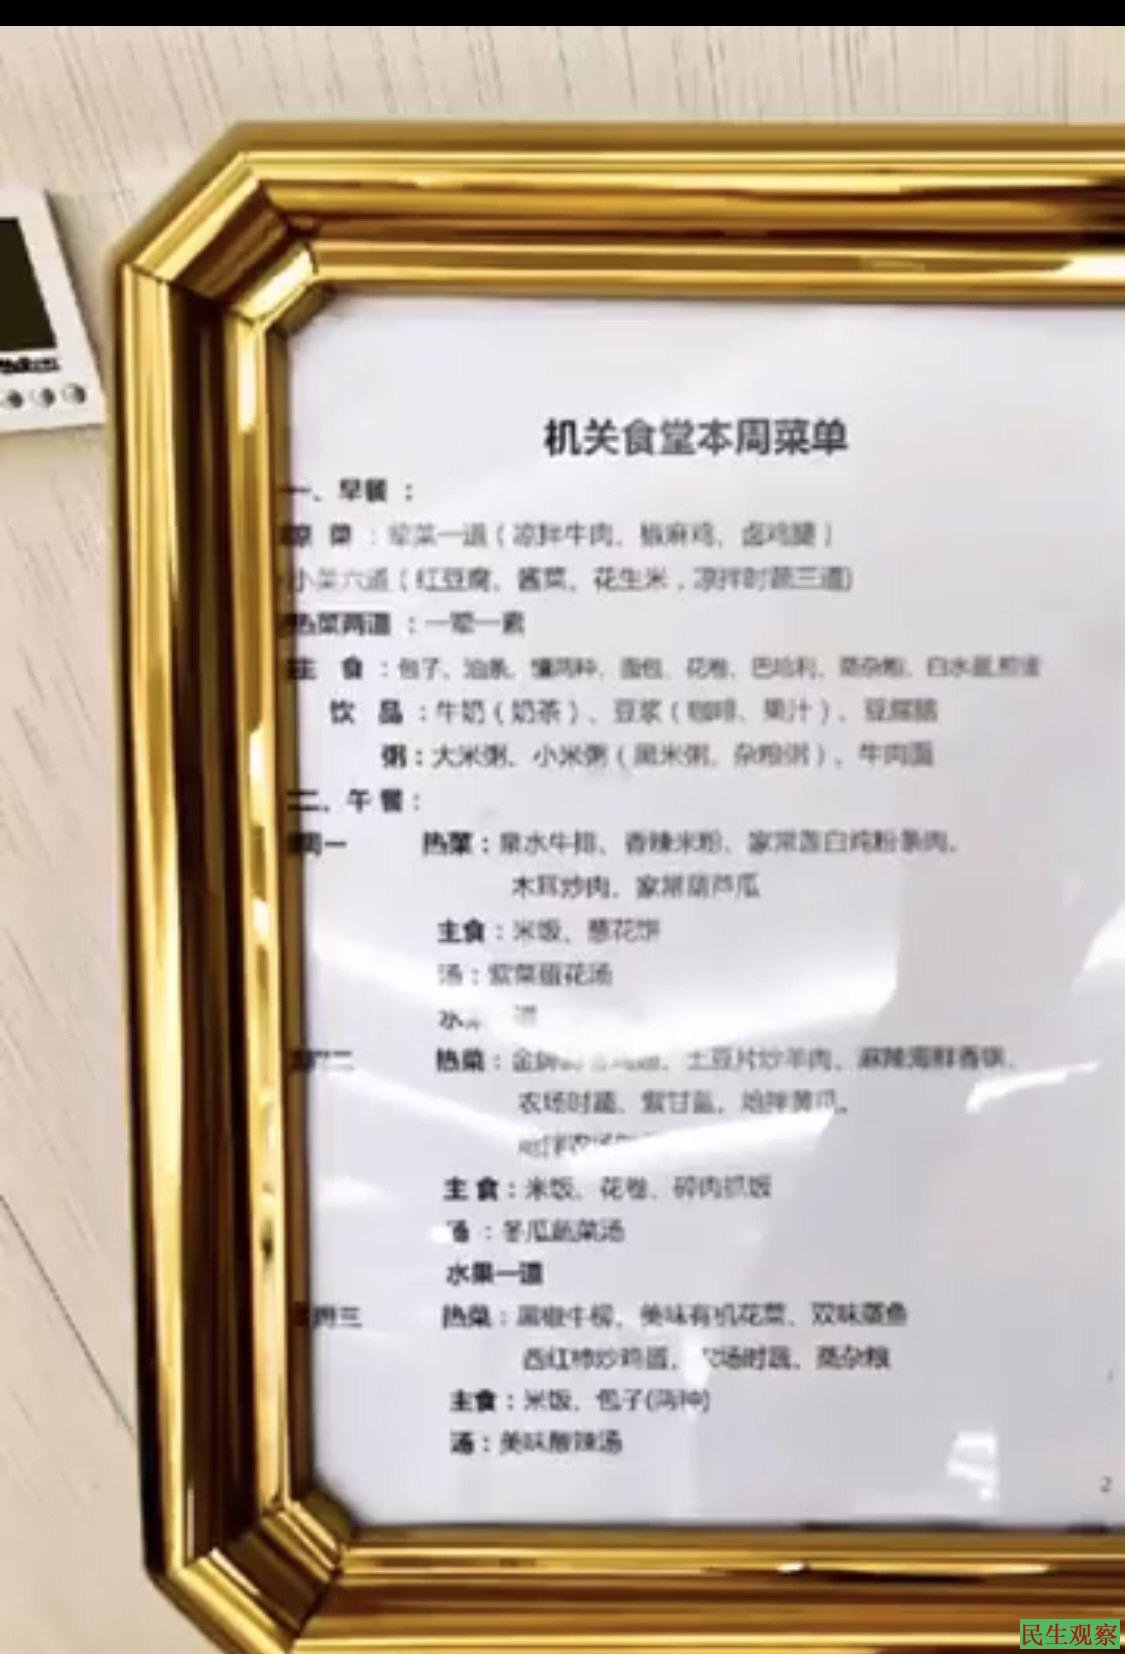 机关食堂本周菜单
一、早餐：
菜：荤菜一道（凉拌牛肉、椒麻鸡、卤鸡腿）
小菜六道（红豆腐、酱菜、花生米，凉拌时蔬三道)
热菜两道：一荤一素
主 食：包子、油条、馕两种、面包、花卷、巴哈利、蒸杂粮、白水蛋,煎蛋
饮 品：牛奶（奶茶）、豆浆（咖啡、果汁）、豆腐脑
粥：大米粥、小米粥（黑米粥、杂粮粥）、牛肉面
二、午餐：
周一 热菜：泉水牛排、香辣米粉、家常莲白炖粉条肉、
木耳炒肉、家常葫芦瓜
主食：米饭、葱花饼
汤：紫菜蛋花汤
水 道
二 热菜：土豆片炒羊肉、麻辣海鲜香锅、
农场时蔬、紫甘蓝、炝拌黄瓜、
主食：米饭、花卷、碎肉抓饭
汤：冬瓜蔬菜汤
水果一道
周三 热菜：黑椒牛柳、美味有机花菜、双味蒸鱼
西红柿炒鸡蛋、农场时蔬、蒸杂粮
主食：米饭、包子(两种)
汤：美味酸辣汤
2
民生观察